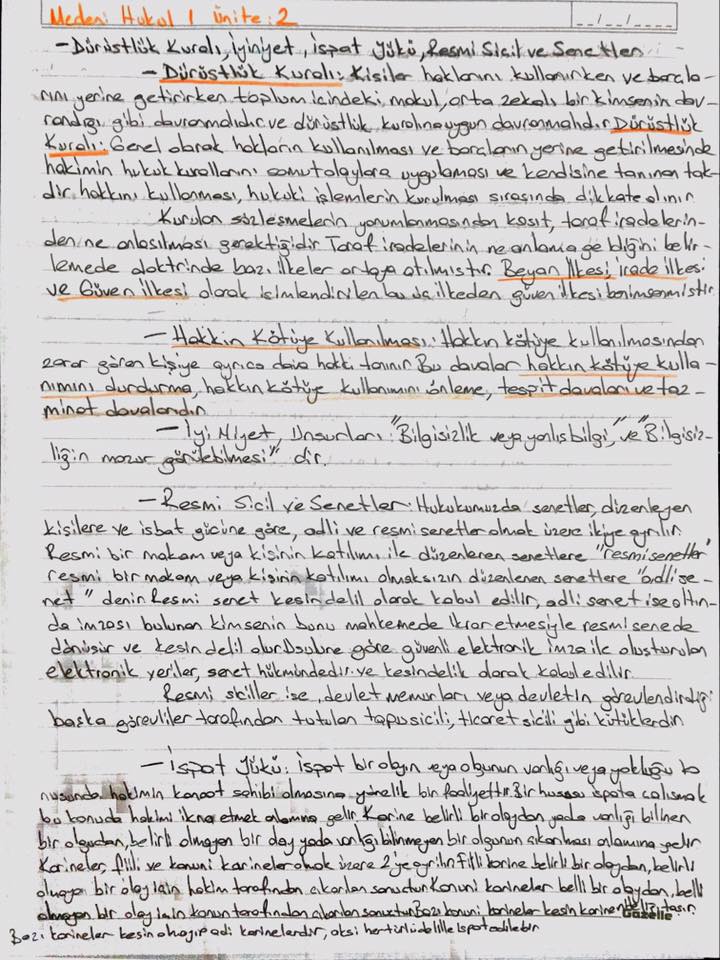 Medeni Hukuk 1 Ünite: 2
_ _/_ _/_ _
- Dürüstlük Kuralı, İyiniyet, İspat Yükü, Resmi Sicil ve Senetler
- Dürüstlük Kuralı: Kişiler haklarını kullanırken ve borçla-
rını yerine getirirken toplum içindeki, makul, orta zekalı bir kimsenin dav-
randığı gibi davranmalıdır ve dürüstlük kuralına uygun davranmalıdır. Dürüstlük
Kuralı: Genel olarak hakların kullanılması ve borçların yerine getirilmesinde
hakimin hukuk kurallarını somut olaylara uygulaması ve kendisine tanınan tak-
dir hakkını kullanması, hukuki işlemlerin kurulması sırasında dikkate alınır.
Kurulan sözleşmelerin yorumlanmasından kasıt, taraf iradelerin-
den ne anlaşılması gerektiğidir. Taraf iradelerinin ne anlama geldiğini belir-
lemede doktrinde bazı ilkeler ortaya atılmıştır. Beyan İlkesi, irade ilkesi
ve Güven ilkesi olarak isimlendirilen bu üç ilkeden güven ilkesi benimsenmiştir.
- Hakkın Kötüye Kullanılması: Hakkın kötüye kullanılmasından
zarar gören kişiye ayrıca dava hakkı tanınır. Bu davalar hakkın kötüye kulla-
nımını durdurma, hakkın kötüye kullanımını önleme, tespit davaları ve taz-
minat davalarıdır.
- İyi Niyet, Unsurları: "Bilgisizlik veya yanlış bilgi," ve "Bilgisiz-
liğin mazur görülebilmesi" dir.
- Resmi Sicil ve Senetler: Hukukumuzda senetler, düzenleyen
kişilere ve isbat gücüne göre, adli ve resmi senetler olmak üzere ikiye ayrılır.
Resmi bir makam veya kişinin katılımı ile düzenlenen senetlere "resmi senetler"
resmi bir makam veya kişinin katılımı olmaksızın düzenlenen senetlere "adli se-
net" denir. Resmi senet kesin delil olarak kabul edilir, adli senet ise altın-
da imzası bulunan kimsenin bunu mahkemede ikrar etmesiyle resmi senede
dönüşür ve kesin delil olur. Usulune göre güvenli elektronik imza ile oluşturulan
elektronik veriler, senet hükmündedir. ve kesin delik olarak kabul edilir.
Resmi siciller ise, devlet memurları veya devletin görevlendirdiği
başka görevliler tarafından tutulan tapu sicili, ticaret sicili gibi kütüklerdir.
- İspat Yükü: İspat bir olayın veya olgunun varlığı veya yokluğu ko
nusunda hakimin kanaat sahibi olmasına yönelik bir faaliyettir. Bir hususu ispata çalışmak
bu konuda hakimi ikna etmek anlamına gelir. Karine belirli bir olaydan yada varlığı bilinen
bir olgudan, belirli olmayan bir olay yada varlığı bilinmeyen bir olgunun çıkarılması anlamına gelir
Karineler, fiili ve kanuni karineler olmak üzere 2'ye ayrılır. Fiili karine belirli bir olaydan, belirli
olmayan bir olay için hakim tarafından çıkarılan sonuctur. Kanuni karineler belli bir olaydan, belli
olmayan bir olay için kanun tarafından çıkarılan sonuctur. Bazı kanuni karineler kesin karine niteliği taşır.
Gazelle
Bazı karineler kesin olmayıp adi karinelerdir, aksi her türlü delille ispat edilebilir